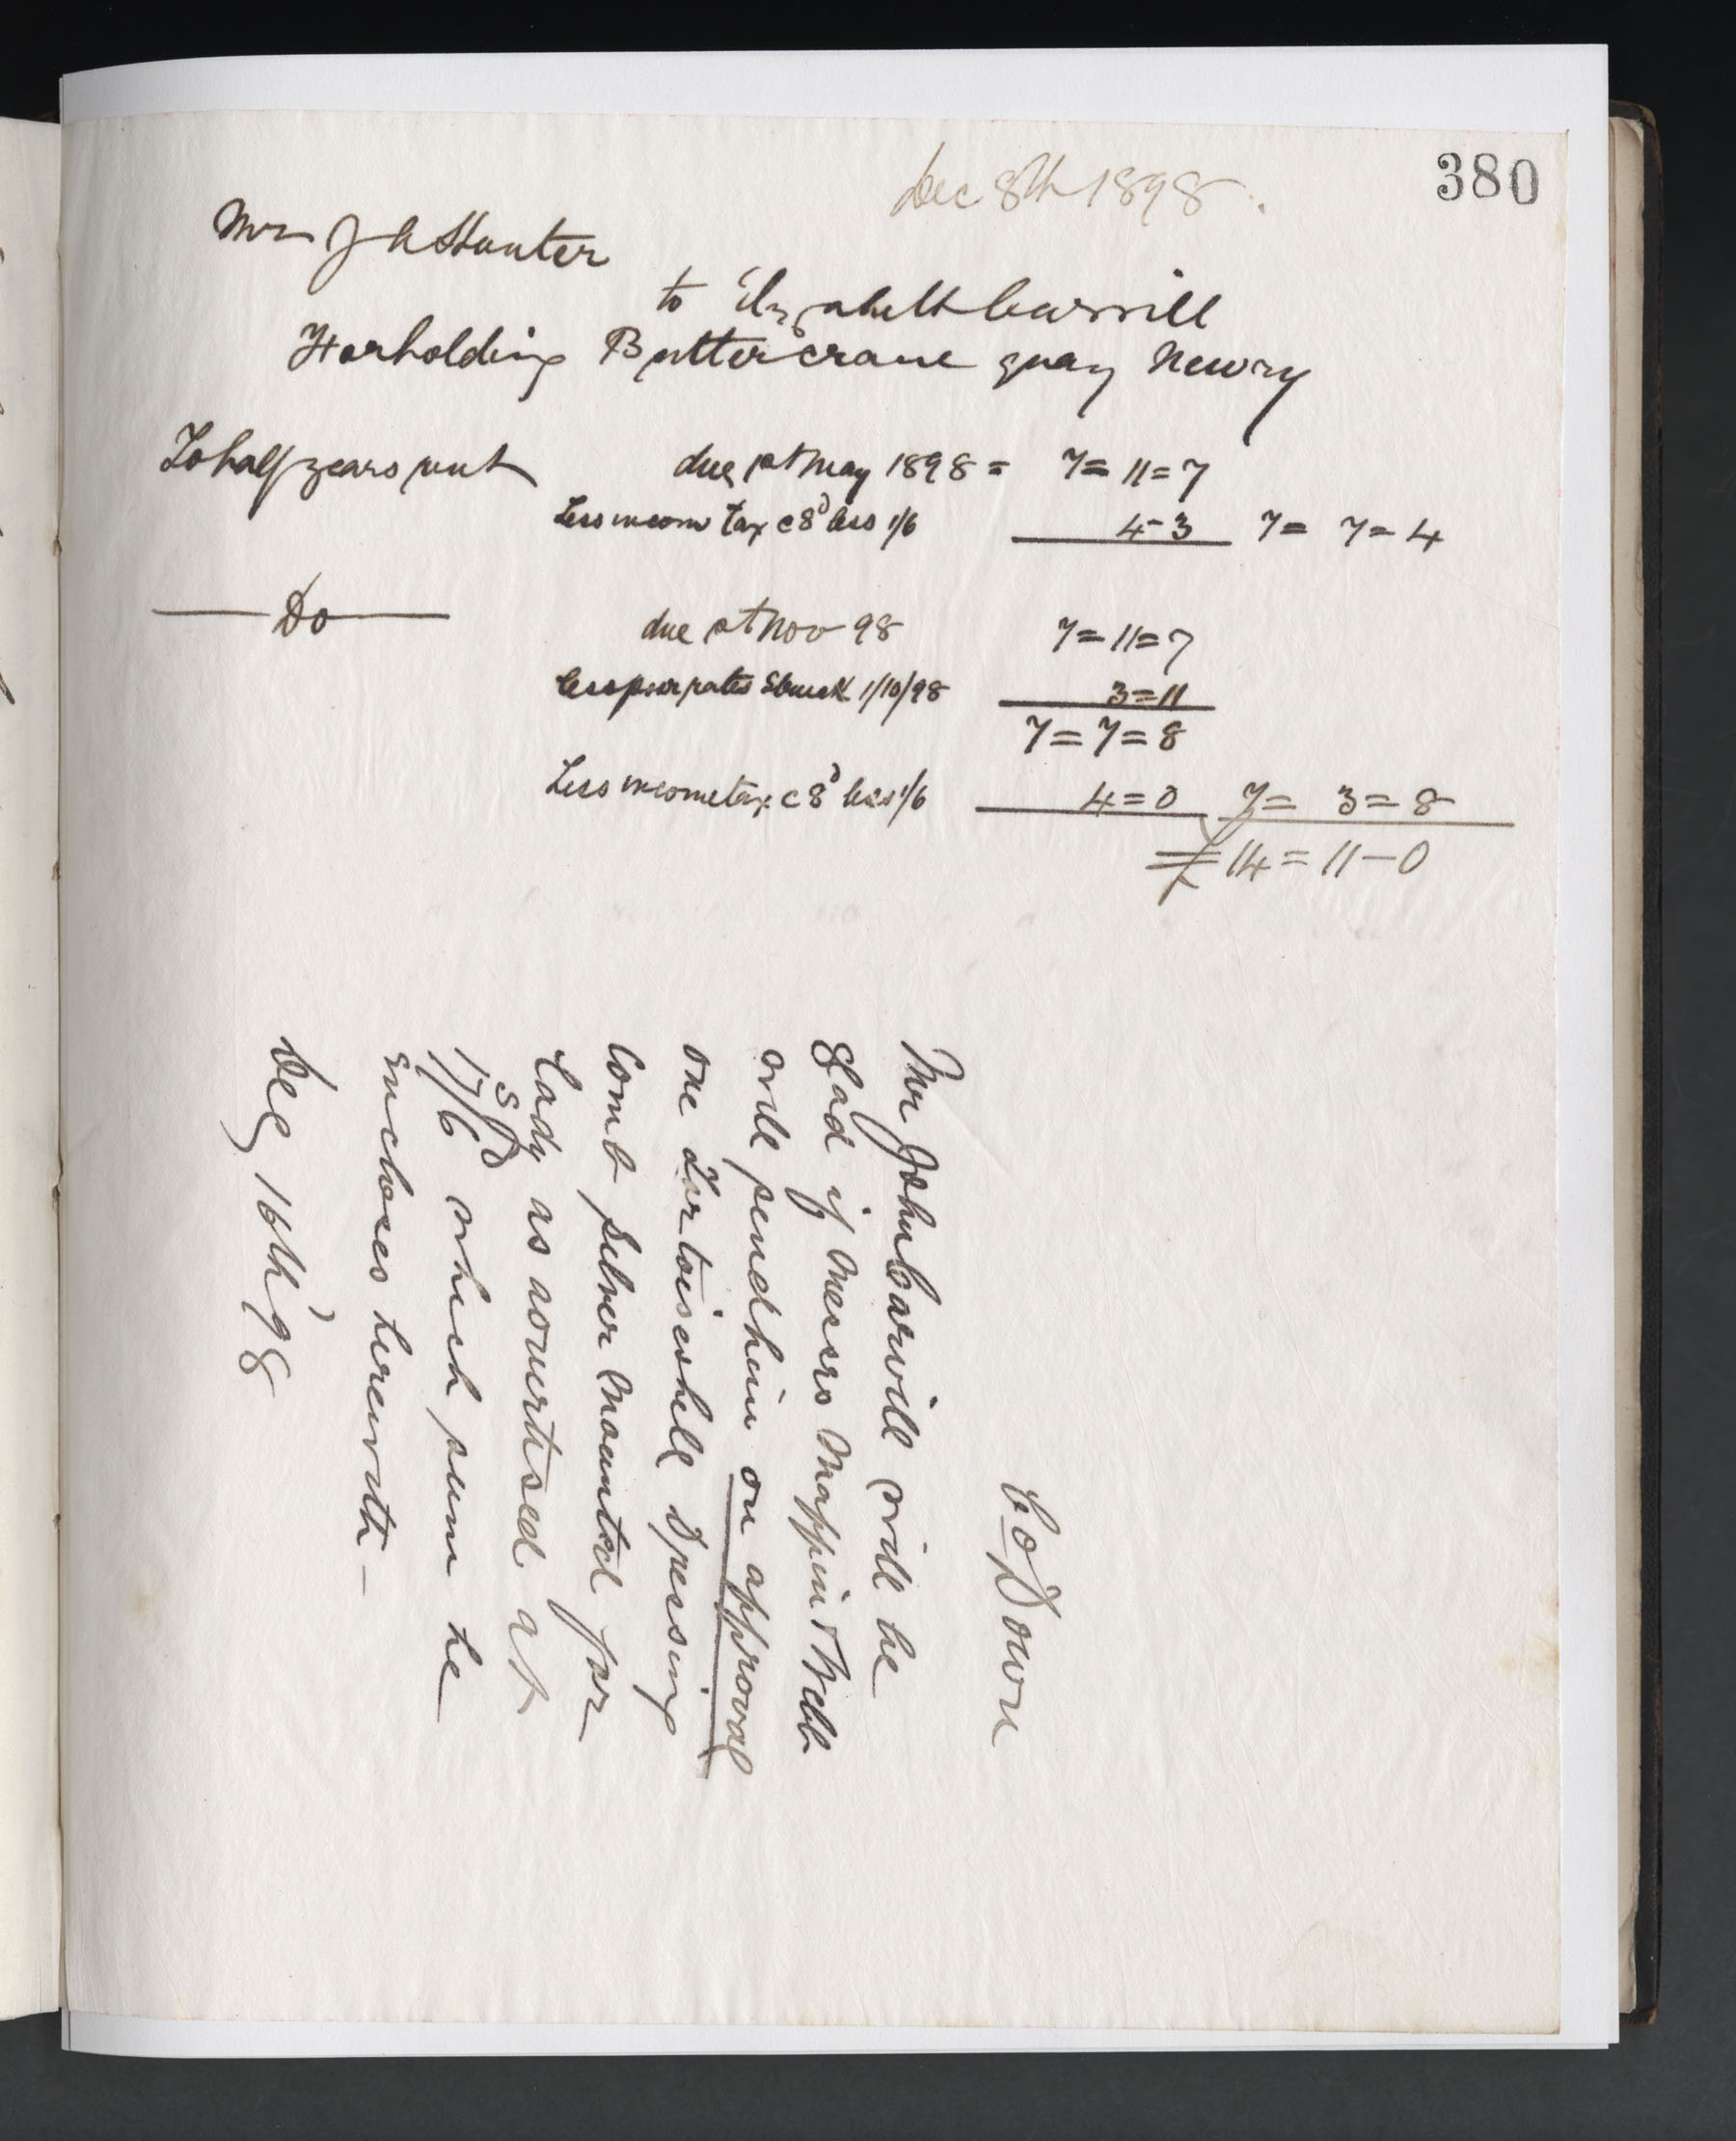 380
Dec 8th 1898.
Mr J A Hunter
to Elizabeth Carvill
For holding Buttercrane quay Newry
To half years rent due 1st May 1898 = 7=11=7
Less incom tax @ 8D less 1/6 4-3 7= 7=4
Do due 1st Nov 98 7=11=7
Less poor rates struck 1/10/98 3=11
7=7=8
Less income tax @ 8D less 1/6 4=0 7= 3=8
£14=11-0
Co Down
Mr John Carvill will be
glad if Messrs Mappin & Webb
will send him on approval
one Tortoiseshell Dressing
Comb silver mounted for
Lady as advertised at
17S/6D which sum he
encloses herewith -
Dec 16th '98